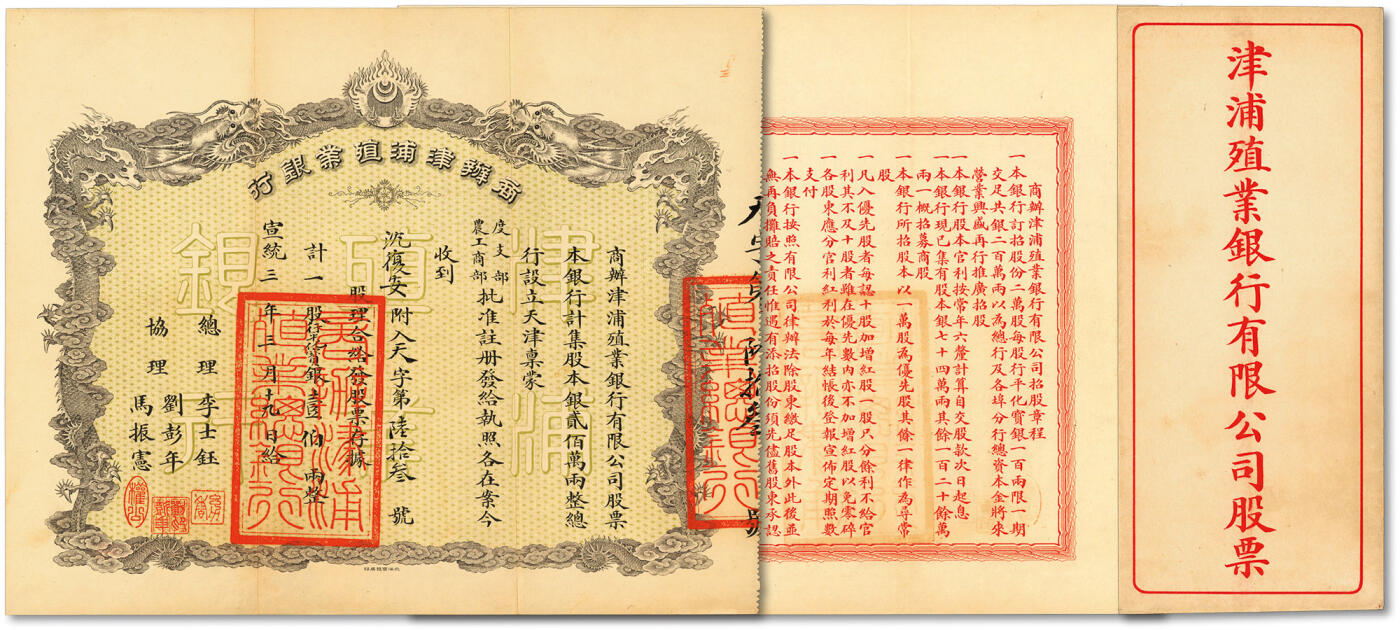 津浦殖業銀行有限公司股票
商辦津浦殖業銀行有限公司招股章程
一本銀行訂招股份二萬股每股行平化寶銀一百兩限一期
交足共銀二百萬兩以為總行及各埠分行總資本金將來
營業興盛再行推廣招股
一本銀行股本官利按常年六釐計算自交股款次日起息
一本銀行現已集有股本銀七十四萬兩其餘一百二十餘萬
兩一概招募商股
一本銀行所招股本以一萬股為優先股其餘一律作為尋常
股
一凡入優先股者每認十股加增紅股一股只分餘利不給官
利其不及十股者雖在優先數內亦不加增紅股以免零碎
一各股東應分官利紅利於每年結帳後登報宣佈定期照數
支付
一本銀行按照有限公司律辦法除股東繳足股本外此後並
無再負攤賠之責任惟遇有添招股份須先儘舊股東承認
天字第陸拾叁號
商辦津浦殖業銀行
商辦津浦殖業銀行有限公司股票
本銀行計集股本銀貳佰萬兩整總
行設立天津稟蒙
度支部
農工商部
批准註册發給執照各在案今
收到
沈復安附入天字第陸拾叁號
股理合給發股票存據
計一股行平化寶銀壹佰兩整
宣統三年三月十九日給
總理李士鈺
協理劉彭年
馬振憲
津浦
殖業
銀行